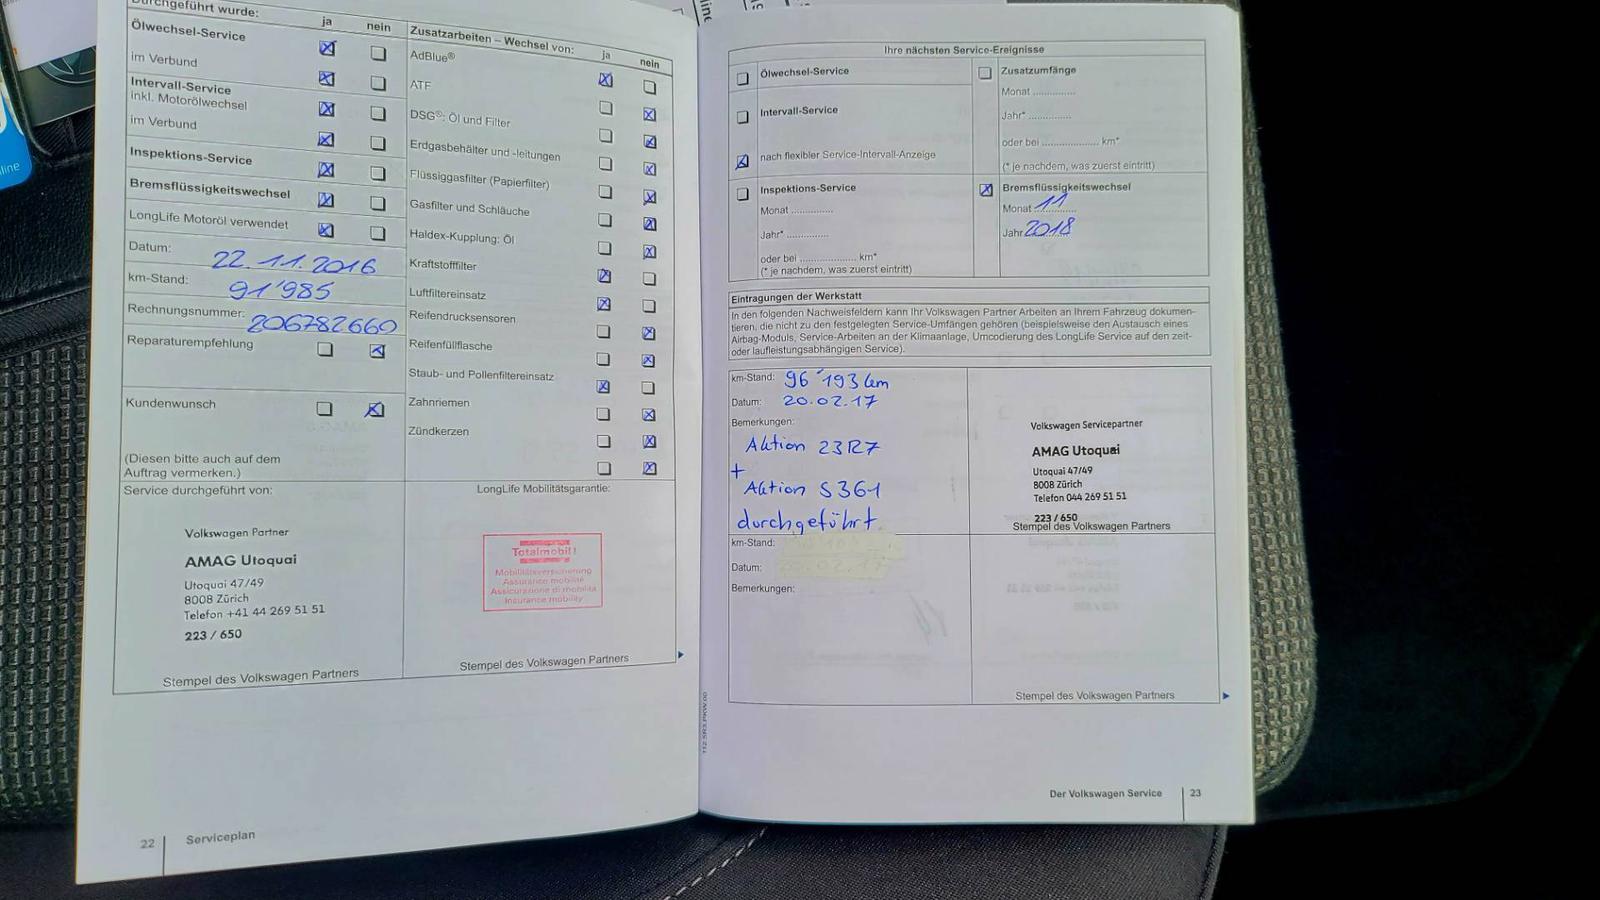 Durchgeführt wurde:
ja
nein
Ölwechsel-Service
im Verbund
Intervall-Service
inkl. Motorölwechsel
im Verbund
Inspektions-Service
Bremsflüssigkeitswechsel
LongLife Motoröl verwendet
Datum: 22.11.2016
km-Stand: 91'985
Rechnungsnummer: 206782660
Reparaturempfehlung
Kundenwunsch
(Diesen bitte auch auf dem
Auftrag vermerken.)
Zusatzarbeiten – Wechsel von:
ja
nein
AdBlue®
ATF
DSG®: Öl und Filter
Erdgasbehälter und -leitungen
Flüssiggasfilter (Papierfilter)
Gasfilter und Schläuche
Haldex-Kupplung: Öl
Kraftstofffilter
Luftfiltereinsatz
Reifendrucksensoren
Reifenfüllflasche
Staub- und Pollenfiltereinsatz
Zahnriemen
Zündkerzen
Service durchgeführt von:
Volkswagen Partner
AMAG Utoquai
Utoquai 47/49
8008 Zürich
Telefon +41 44 269 51 51
223 / 650
Stempel des Volkswagen Partners
LongLife Mobilitätsgarantie:
Totalmobil!
Mobilitätsversicherung
Assurance mobilité
Assicurazione di mobilità
Insurance mobility
Stempel des Volkswagen Partners
22
Serviceplan
Ihre nächsten Service-Ereignisse
Ölwechsel-Service
Intervall-Service
nach flexibler Service-Intervall-Anzeige
Inspektions-Service
Monat ..............
Jahr* ..............
oder bei ................... km*
(* je nachdem, was zuerst eintritt)
Zusatzumfänge
Monat ..............
Jahr* ..............
oder bei ................... km*
(* je nachdem, was zuerst eintritt)
Bremsflüssigkeitswechsel
Monat 11
Jahr 2018
Eintragungen der Werkstatt
In den folgenden Nachweisfeldern kann Ihr Volkswagen Partner Arbeiten an Ihrem Fahrzeug dokumen-
tieren, die nicht zu den festgelegten Service-Umfängen gehören (beispielsweise den Austausch eines
Airbag-Moduls, Service-Arbeiten an der Klimaanlage, Umcodierung des LongLife Service auf den zeit-
oder laufleistungsabhängigen Service).
km-Stand: 96'193 km
Datum: 20.02.17
Bemerkungen:
Aktion 23R7
+
Aktion S361
durchgeführt.
Volkswagen Servicepartner
AMAG Utoquai
Utoquai 47/49
8008 Zürich
Telefon 044 269 51 51
223 / 650
Stempel des Volkswagen Partners
km-Stand:
Datum:
Bemerkungen:
Stempel des Volkswagen Partners
112.5R3.PKW.00
Der Volkswagen Service
23